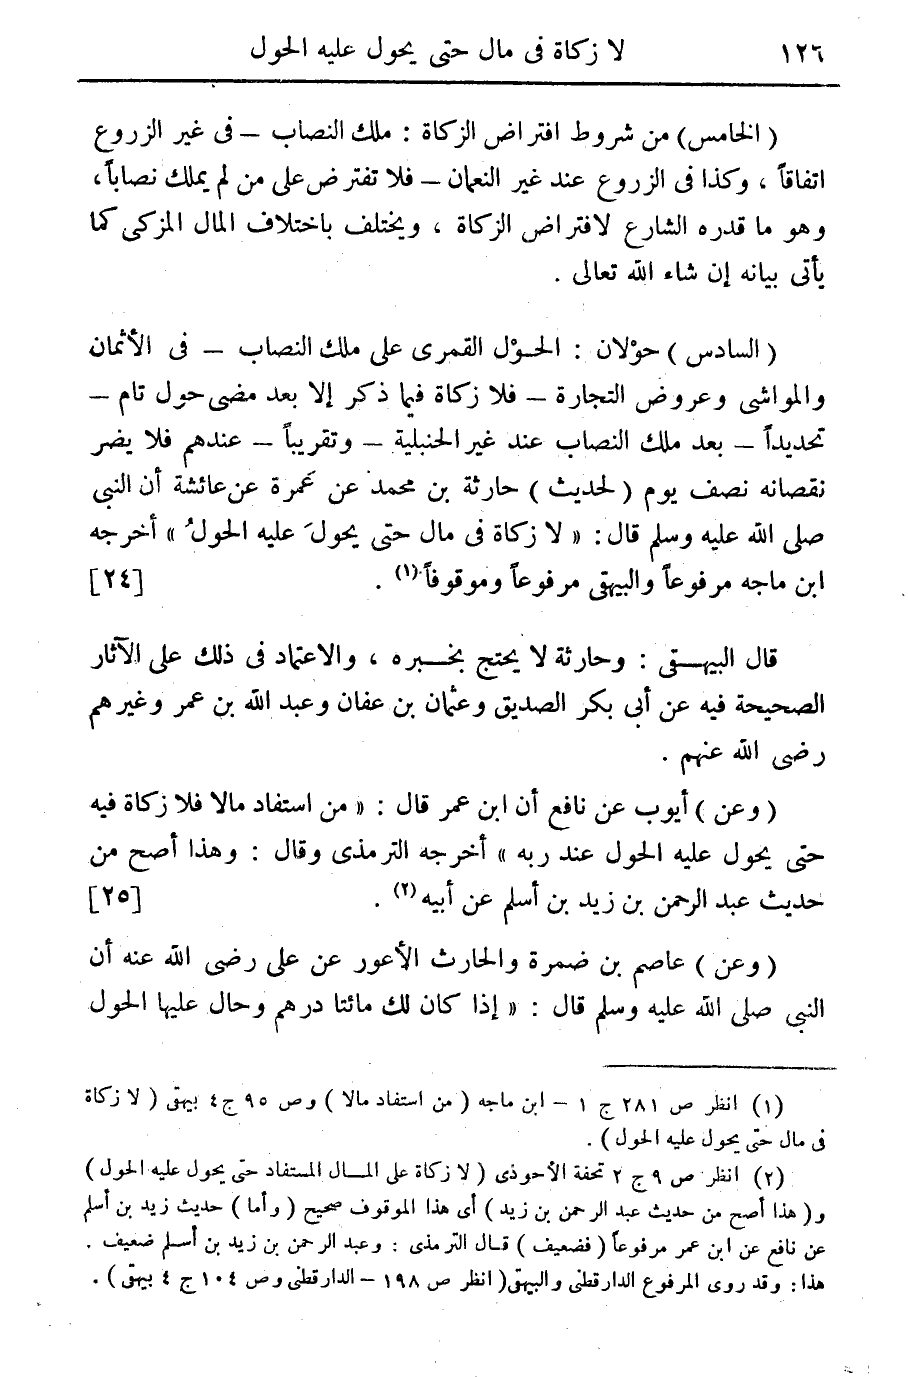 ١٢٦ لا زكاة فى مال حتى يحول عليه الحول
( الخامس) من شروط افتراض الزكاة : ملك النصاب – فى غير الزروع
اتفاقاً ، وكذا فى الزروع عند غير النعمان – فلا تفترض على من لم يملك نصاباً ،
وهو ما قدره الشارع لافتراض الزكاة ، ويختلف باختلاف المال المزكى كما
يأتى بيانه إن شاء الله تعالى .
( السادس ) حوْلان : الحوْل القمرى على ملك النصاب – فى الأثمان
والمواشى وعروض التجارة – فلا زكاة فيما ذكر إلا بعد مضى حول تام –
تحديداً – بعد ملك النصاب عند غير الحنبلية – وتقريباً – عندهم فلا يضر
نقصانه نصف يوم ( لحديث ) حارثة بن محمد عن عَمرة عن عائشة أن النبى
صلى الله عليه وسلم قال : « لا زكاة فى مال حتى يحولَ عليه الحولُ » أخرجه
ابن ماجه مرفوعاً والبيهقى مرفوعاً وموقوفاً (١) . [٢٤]
قال البيهقى : وحارثة لا يحتج بخبره ، والاعتماد فى ذلك على الآثار
الصحيحة فيه عن أبى بكر الصديق وعثمان بن عفان وعبد الله بن عمر وغيرهم
رضى الله عنهم .
( وعن ) أيوب عن نافع أن ابن عمر قال : « من استفاد مالا فلا زكاة فيه
حتى يحول عليه الحول عند ربه » أخرجه الترمذى وقال : وهذا أصح من
حديث عبد الرحمن بن زيد بن أسلم عن أبيه (٢) . [٢٥]
( وعن ) عاصم بن ضمرة والحارث الأعور عن على رضى الله عنه أن
النبى صلى الله عليه وسلم قال : « إذا كان لك مائتا درهم وحال عليها الحول
(١) انظر ص ٢٨١ ج ١ – ابن ماجه ( من استفاد مالا ) وص ٩٥ ج ٤ بيهقى ( لا زكاة
فى مال حتى يحول عليه الحول ) .
(٢) انظر ص ٩ ج ٢ تحفة الأحوذى ( لا زكاة على المال المستفاد حتى يحول عليه الحول )
و ( هذا أصح من حديث عبد الرحمن بن زيد ) أى هذا الموقوف صحيح ( وأما ) حديث زيد بن أسلم
عن نافع عن ابن عمر مرفوعاً ( فضعيف ) قال الترمذى : وعبد الرحمن بن زيد بن أسلم ضعيف .
هذا : وقد روى المرفوع الدارقطنى والبيهقى ( انظر ص ١٩٨ – الدارقطنى وص ١٠٤ ج ٤ بيهقى ) .